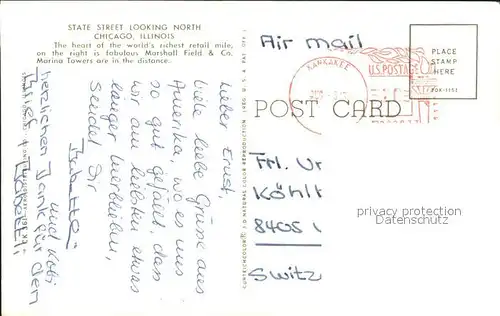 STATE STREET LOOKING NORTH
CHICAGO, ILLINOIS
The heart of the world's richest retail mile,
on the right is fabulous Marshall Field & Co.
Marina Towers are in the distance.
Lieber Ernst,
viele liebe Grüsse aus
Amerika, wo es uns
so gut gefällt, dass
wir am liebsten etwas
länger hierbleiben,
Seidel Dr
Babette
und Kobi
herzlichen Dank für den
Brief, Babette!
CURTEICHCOLOR® 3-D NATURAL COLOR REPRODUCTION (REG. U.S.A. PAT. OFF.)
Air mail
POST CARD
KANKAKEE
U.S.POSTAGE
PLACE
STAMP
HERE
Frl. Ur
Köhlt
8405
Switz
privacy protection
Datenschutz